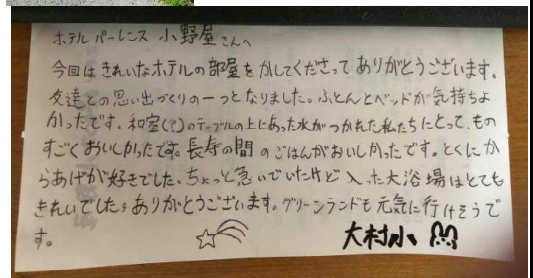 ホテル パーレンス 小野屋さんへ
今回はきれいなホテルの部屋をかしてくださってありがとうございます。
友達との思い出づくりの一つとなりました。ふとんとベッドが気持ちよ
かったです。和室(?)のテーブルの上にあった水がつかれた私たちにとって、もの
すごくおいしかったです。長寿の間のごはんがおいしかったです。とくにか
らあげが好きでした。ちょっと急いでいたけど入った大浴場はとても
きれいでした。ありがとうございます。グリーンランドも元気に行けそうで
す。
大村小